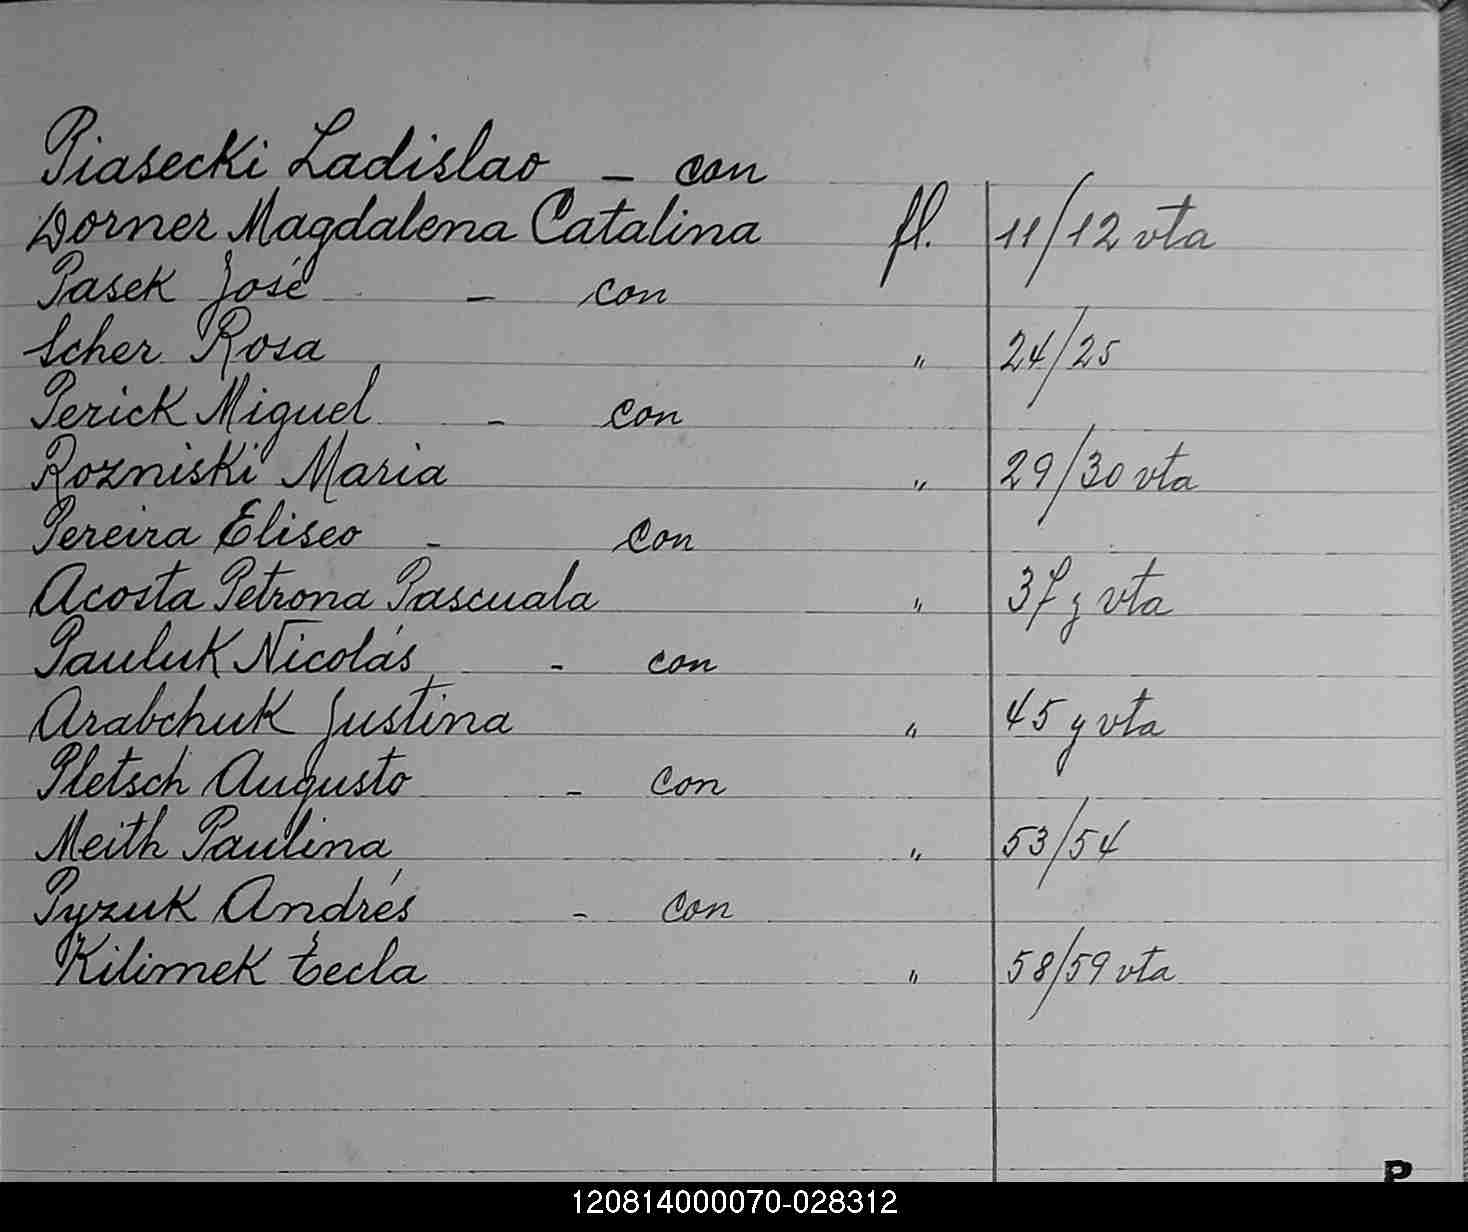 Piasecki Ladislao - con
Dorner Magdalena Catalina fl. 11/12 vta
Pasek José - con
Scher Rosa " 24/25
Perick Miguel - con
Rozniski Maria " 29/30 vta
Pereira Eliseo - con
Acosta Petrona Pascuala " 37 y vta
Pauluk Nicolás - con
Arabchuk Justina " 45 y vta
Pletsch Augusto - con
Meith Paulina " 53/54
Pyzuk Andrés - con
Kilimek Tecla " 58/59 vta
P
120814000070-028312